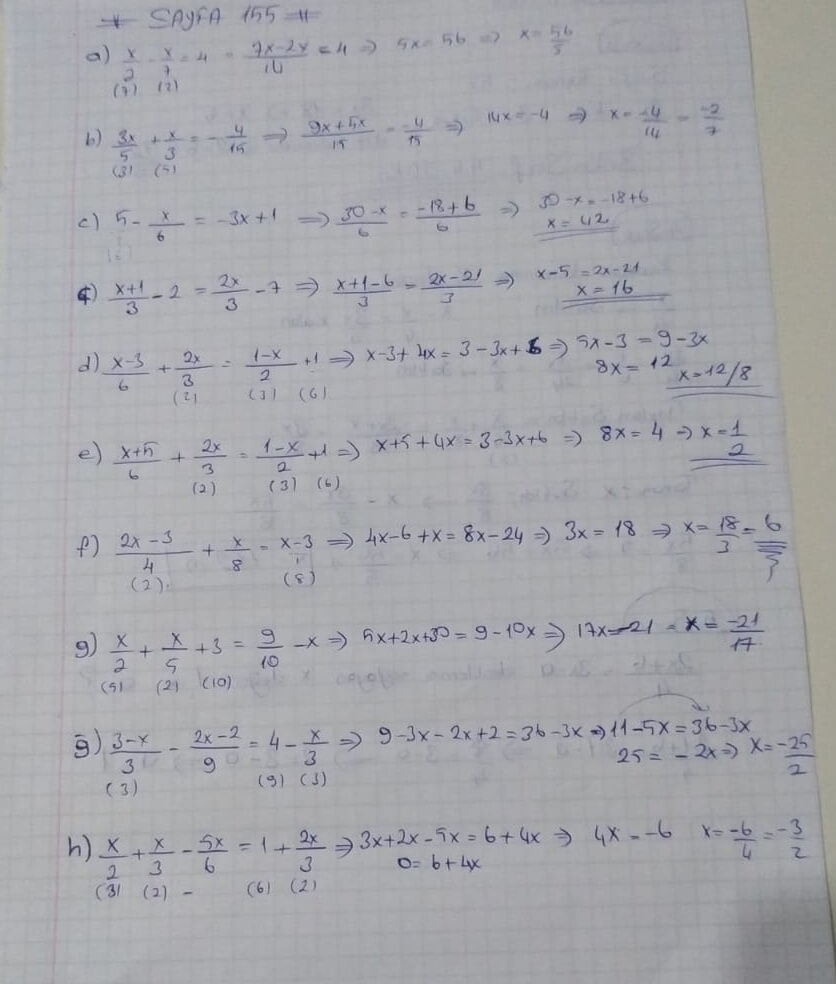 * SAYFA 155 *
a) x/2 - x/7 = 4 = (7x-2x)/14 = 4 ⇒ 5x = 56 ⇒ x = 56/5
(7) (2)
b) 3x/5 + x/3 = -4/15 ⇒ (9x+5x)/15 = -4/15 ⇒ 14x = -4 ⇒ x = -4/14 = -2/7
(3) (5)
c) 5 - x/6 = -3x+1 ⇒ (30-x)/6 = (-18+6)/6 ⇒ 30-x = -18+6
x = 42
ç) (x+1)/3 - 2 = 2x/3 - 7 ⇒ (x+1-6)/3 = (2x-21)/3 ⇒ x-5 = 2x-21
x = 16
d) (x-3)/6 + 2x/3 = (1-x)/2 + 1 ⇒ x-3+4x = 3-3x+6 ⇒ 5x-3 = 9-3x
(2) (3) (6) 8x = 12 x = 12/8
e) (x+5)/6 + 2x/3 = (1-x)/2 + 1 ⇒ x+5+4x = 3-3x+6 ⇒ 8x = 4 ⇒ x = 1/2
(2) (3) (6)
f) (2x-3)/4 + x/8 = x-3 ⇒ 4x-6+x = 8x-24 ⇒ 3x = 18 ⇒ x = 18/3 = 6
(2) (8)
g) x/2 + x/5 + 3 = 9/10 - x ⇒ 5x+2x+30 = 9-10x ⇒ 17x = -21 = x = -21/17
(5) (2) (10)
ğ) (3-x)/3 - (2x-2)/9 = 4 - x/3 ⇒ 9-3x-2x+2 = 36-3x ⇒ 11-5x = 36-3x
(3) (9) (3) 25 = -2x ⇒ x = -25/2
h) x/2 + x/3 - 5x/6 = 1 + 2x/3 ⇒ 3x+2x-5x = 6+4x ⇒ 4x = -6 x = -6/4 = -3/2
(3) (2) - (6) (2) 0 = 6+4x